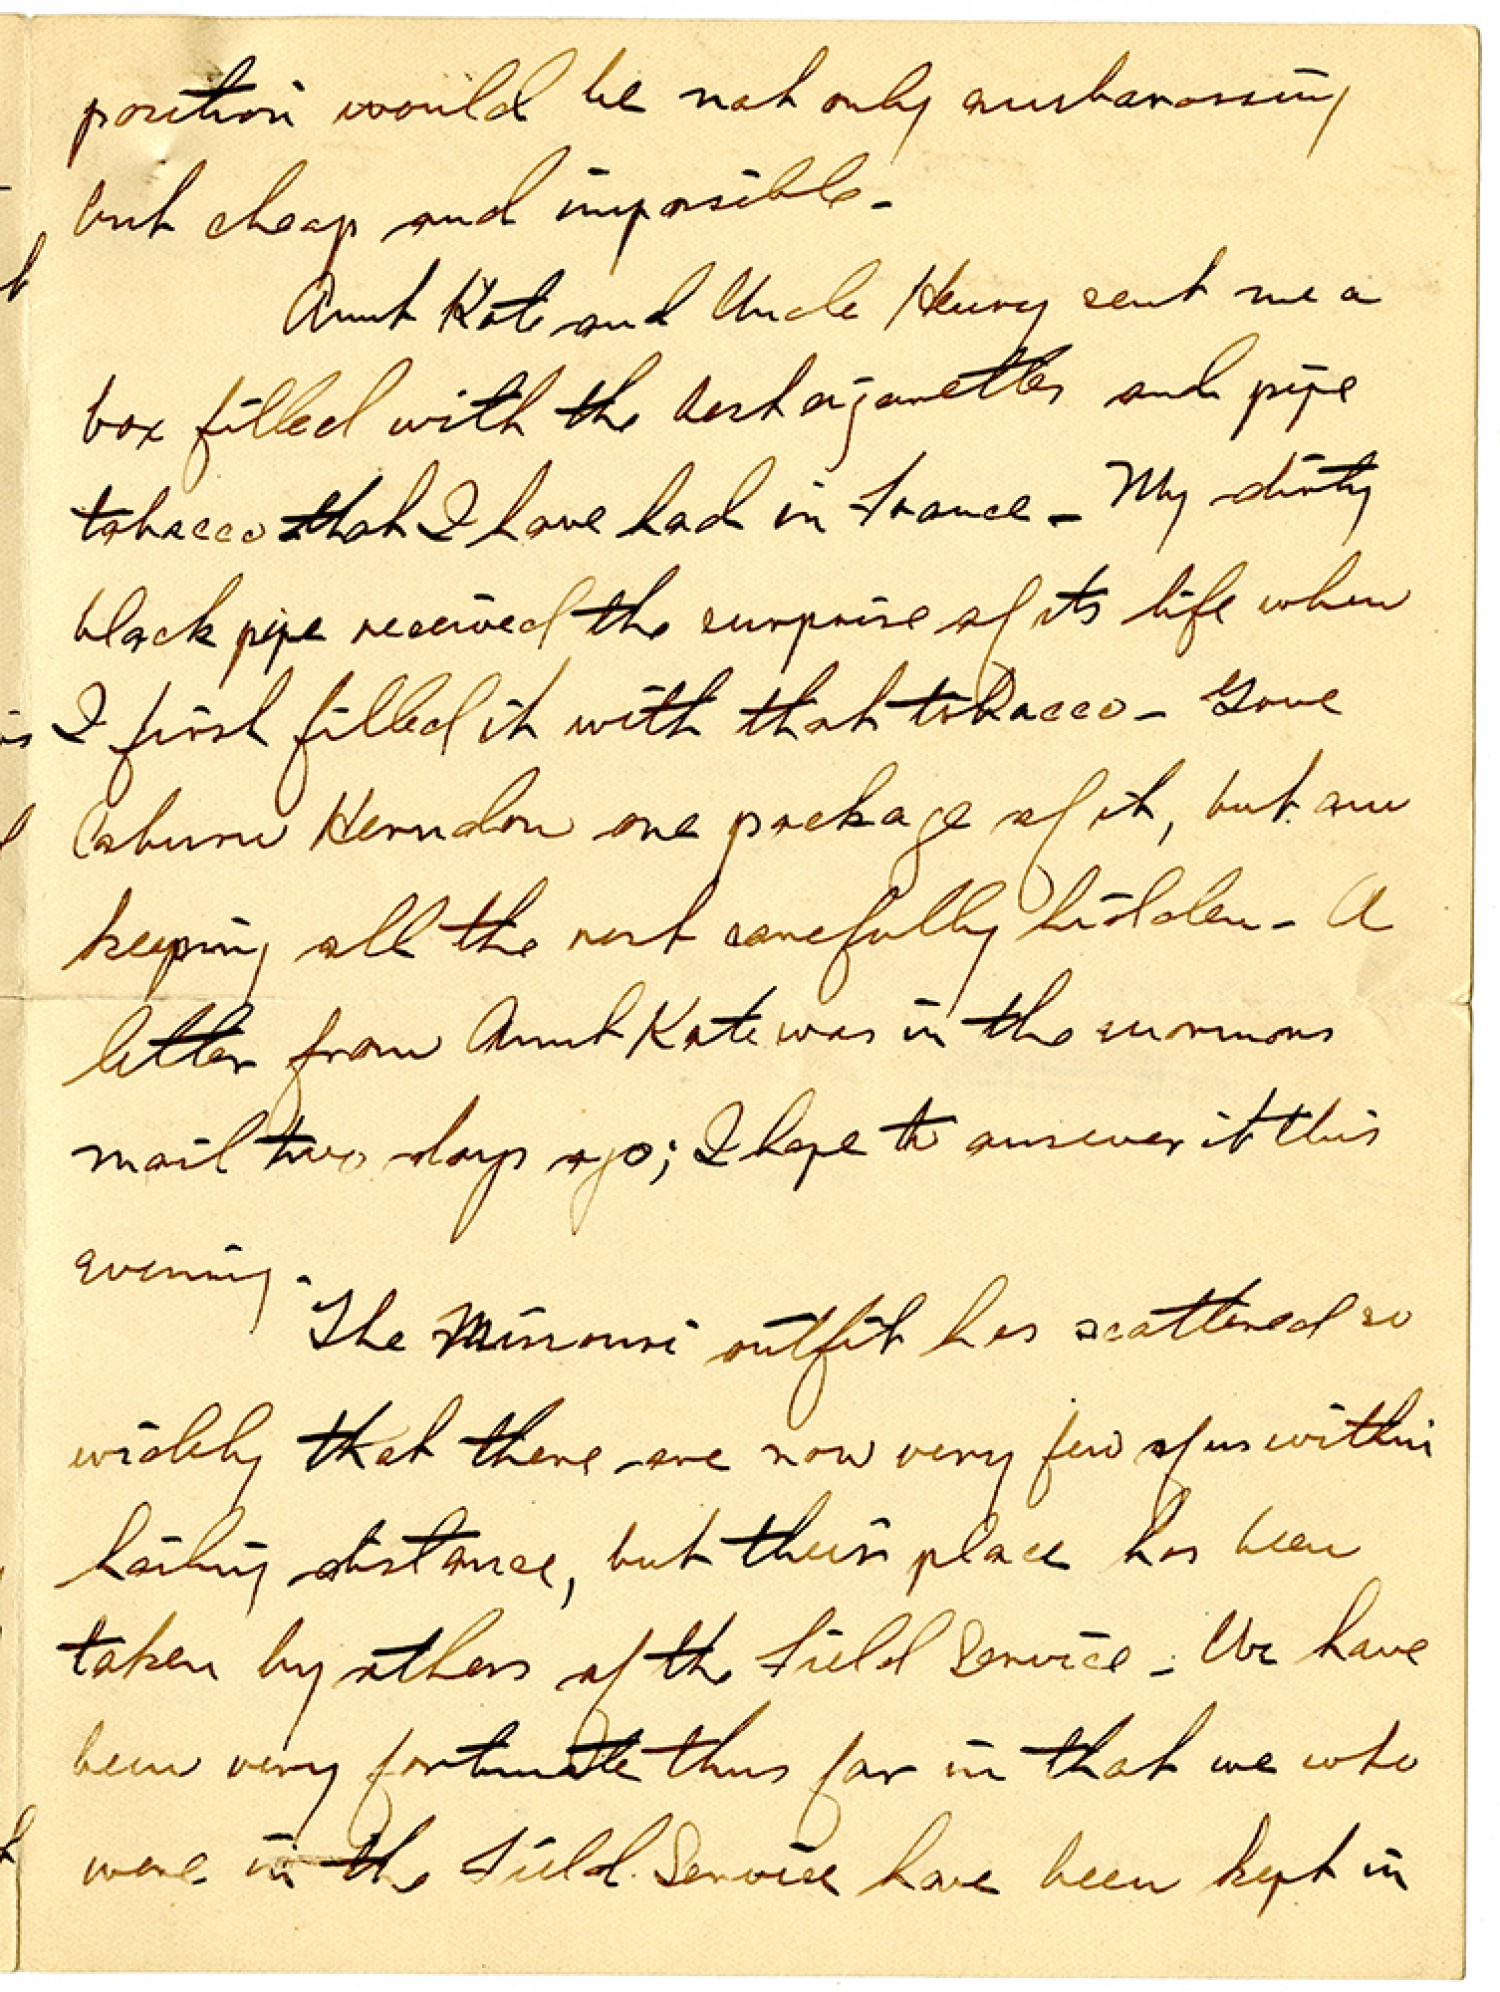 position would be not only embarassing
but cheap and impossible –
Aunt Kate and Uncle Henry sent me a
box filled with the best cigarettes and pipe
tobacco that I have had in France – My dirty
black pipe received the surprise of its life when
I first filled it with that tobacco – Gave
Osburn Herndon one package of it, but am
keeping all the rest carefully hidden – A
letter from Aunt Kate was in the enormous
mail two days ago; I hope to answer it this
evening.
The Missouri outfit has scattered so
widely that there are now very few of us within
hailing distance, but their place has been
taken by others of the Field Service – We have
been very fortunate thus far in that we who
were in the Field Service have been kept in